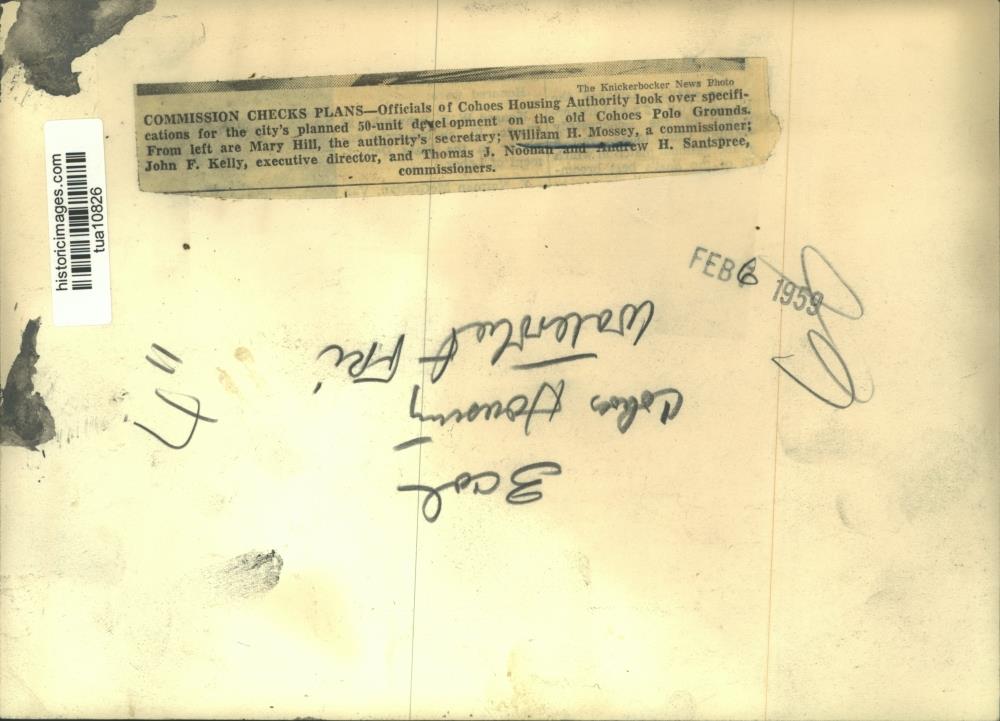 The Knickerbocker News Photo
COMMISSION CHECKS PLANS—Officials of Cohoes Housing Authority look over specifi-
cations for the city's planned 50-unit development on the old Cohoes Polo Grounds.
From left are Mary Hill, the authority's secretary; William H. Mossey, a commissioner;
John F. Kelly, executive director, and Thomas J. Noonan and Andrew H. Santspree,
commissioners.
historicimages.com
tua10826
FEB 1959
3 col
Cohoes Housing
Watervliet FRI